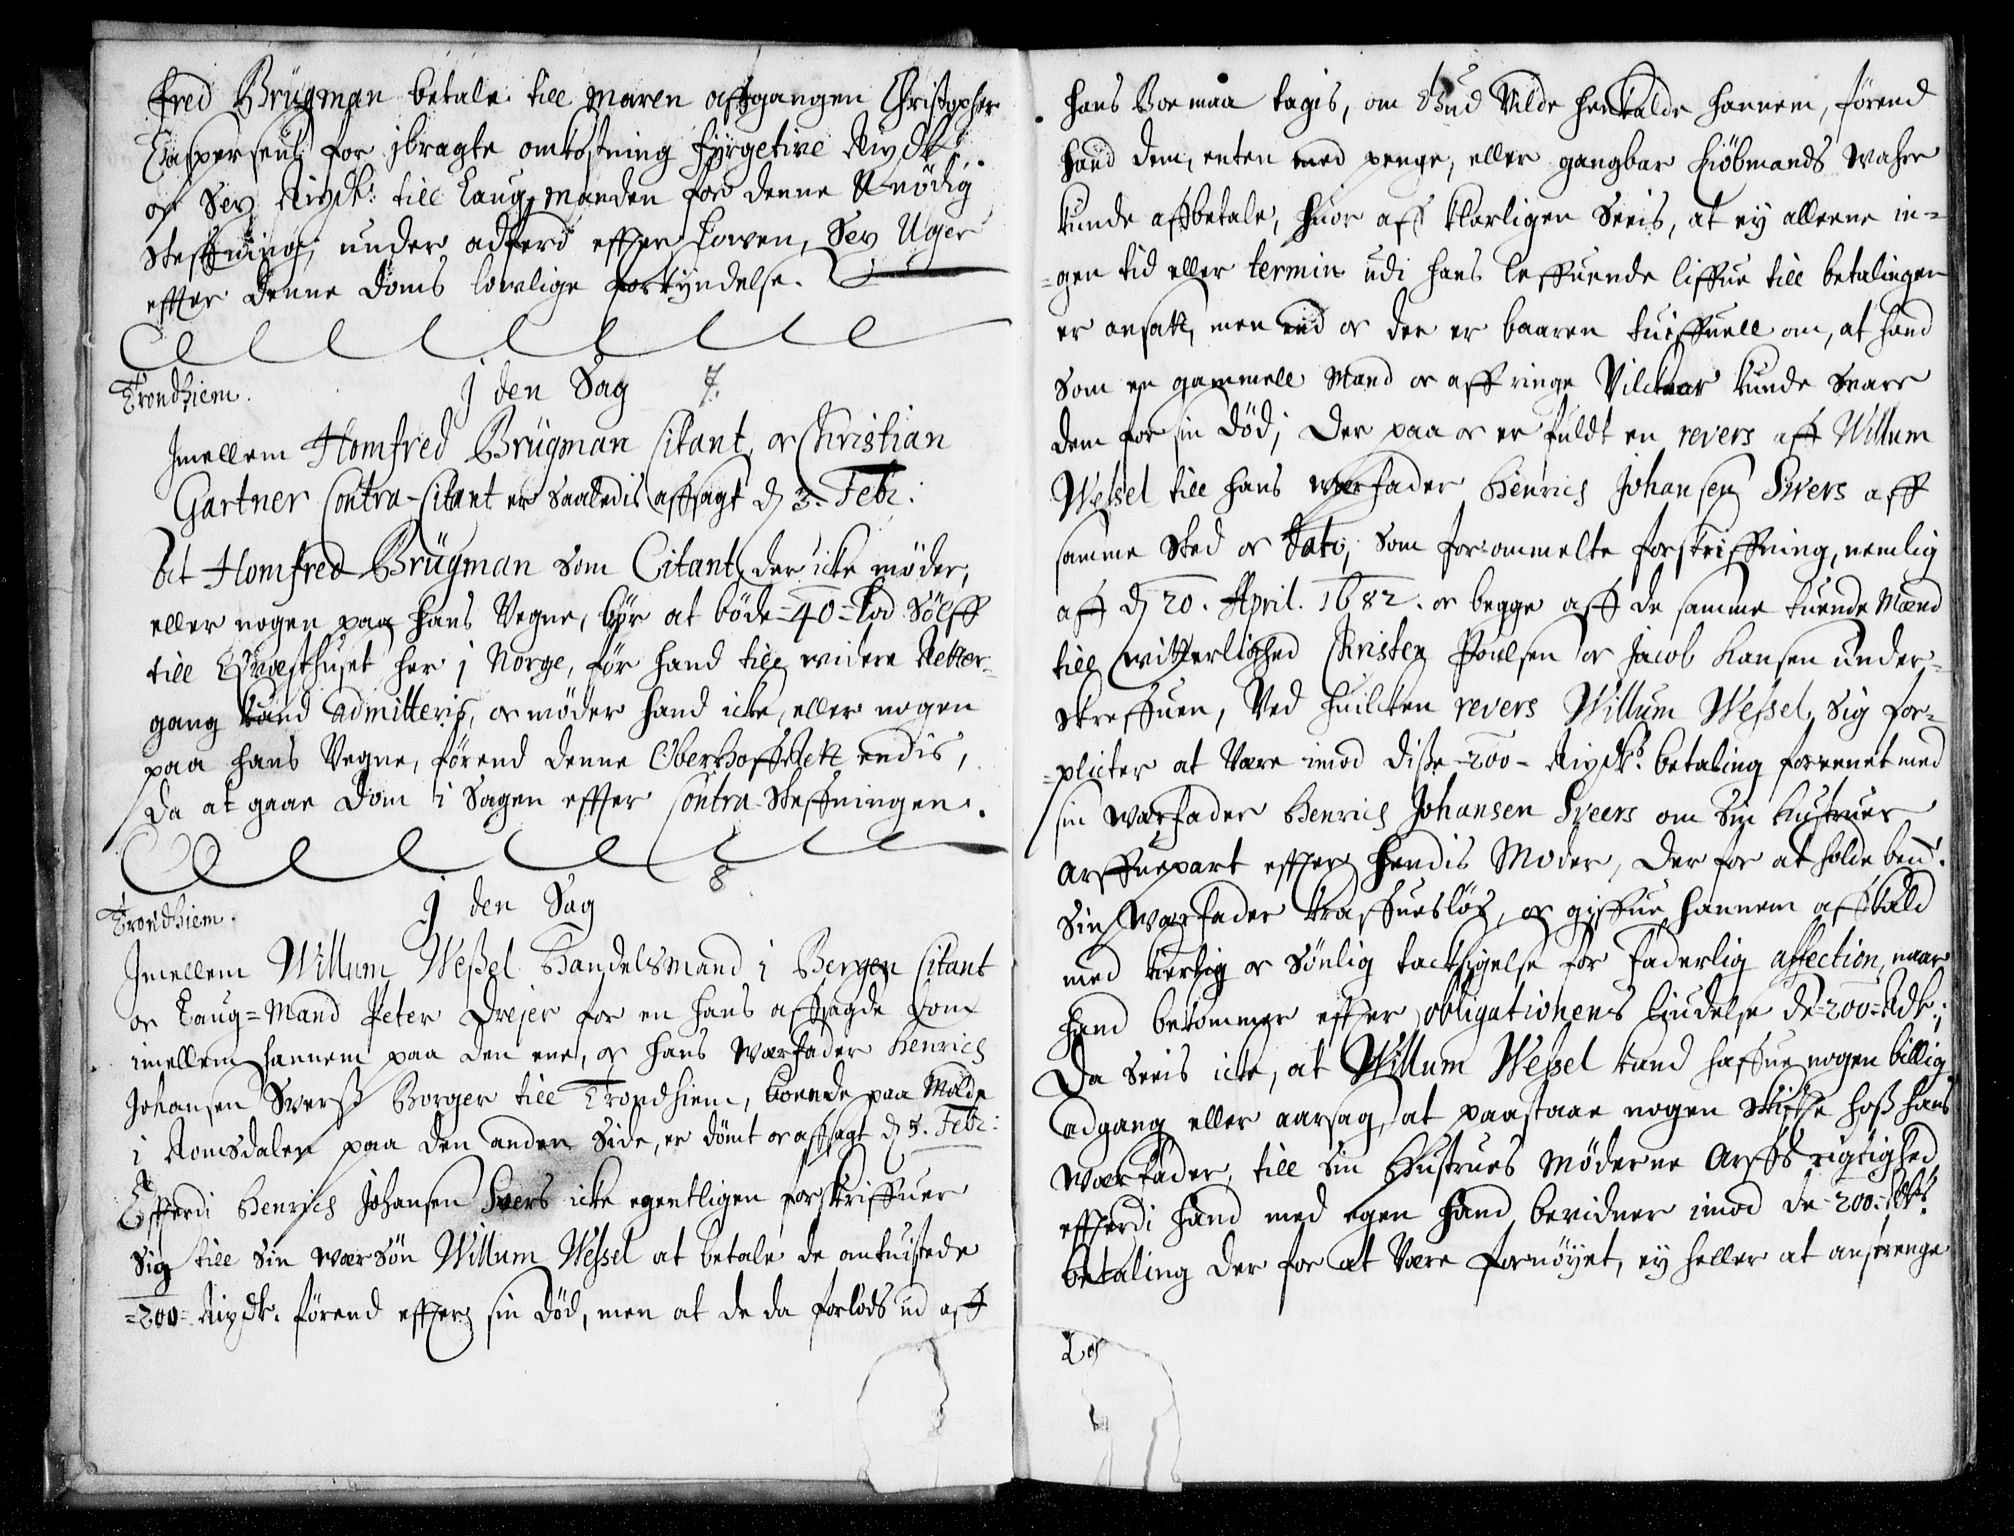 fred Brügman betale till Maren affgangen Christopher
Caspersens for ibragte omkostning fyrgetive Rixdlr:
oc Sex Rixdlr: till Laugmanden for denne U-nödig
Steffning, under adferd effter Lowen, Sex Uger
effter denne Doms lowlige forkyndelse.
Trondhiem.
J den Sag 7.
Jmellem Homfred Brügman Citant, oc Christian
Gartner Contra-Citant er Saaledis affsagt d 3. Febr:
At Homfred Brügman som Citant, der icke möder,
eller nogen paa hans Vegne, bör at böde -40- Lod Sölff
till Qvæsthuset her i Norge, för hand till widere Retter-
gang kand admitteris, oc möder hand icke, eller nogen
paa hans Vegne, förend denne OberhoffRett endis,
da at gaae Dom i Sagen effter Contra-Steffningen.
8
Trondhiem.
J den Sag
Jmellem Willum Wessel Handelsmand i Bergen Citant
oc Laug=Mand Peter Drejer for en hans affsagde Dom
imellem hannem paa den ene, oc hans Værfader Henrich
Johansen Sverss Borger till Trondhiem, boende paa Molde
i Romsdalen paa den anden Side, er dömt oc affsagt d 3. Febr:
Efferdi Henrich Johansen Svers icke egentligen forskriffuer
Sig till Sin værSön Willum Wessel at betale de omtuistede
=200= Rixdlr. förend effter sin Död, men at de da forlods ud aff
hans Boe maa tagis, om Gud Vilde henkalde hannem, förend
hand dem, enten med penge, eller gangbar Kiöbmands Wahre
kunde affbetale, huor aff klarligen Seeis, at ey alleene in=
=gen tid eller termin udi hans leffuende liffue till betalingen
er ansatt, men end oc der er baaren tuiffuell om, at hand
Som en gammell Mand oc aff ringe Vilckaar kunde Svare
dem for sin Död; Der paa oc er fuldt en revers aff Willum
Wessel till hans værfader Henrich Johansen Svers aff
samme Sted oc dato, Som forommelte forskriffning, nemlig
aff d 20. April. 1682. oc begge aff de samme tuende Mænd
till witterlighed Christen Poulsen oc Jacob Hansen under-
skreffuen, Ved huilcken revers Willum Wessel Sig for-
=plicter at Være imod disse -200- Rixdlrs betaling foreenet med
sin værfader Henrich Johansen Sveers om Sin Hustrues
Arffuepart effter Hendis Moder, der for at holde ben:te
Sin værfader kraffueslös, oc giffue hannem affkald
med kierlig oc Sönlig tacksigelse for faderlig affection, naar
hand bekommer effter obligationens liudelse de -200- Rdlr;
Da Seeis icke, at Willum Wessel kand haffue nogen billig
adgang eller aarsag, at paastaae nogen Skiffte hoss hans
værfader, till Sin Hustrues Möderne Arffs rigtighed,
efferdi hand med egen Hand bevidner imod de -200- Rdlrs
betaling der for at Være fornöyet, ey heller at anstrenge